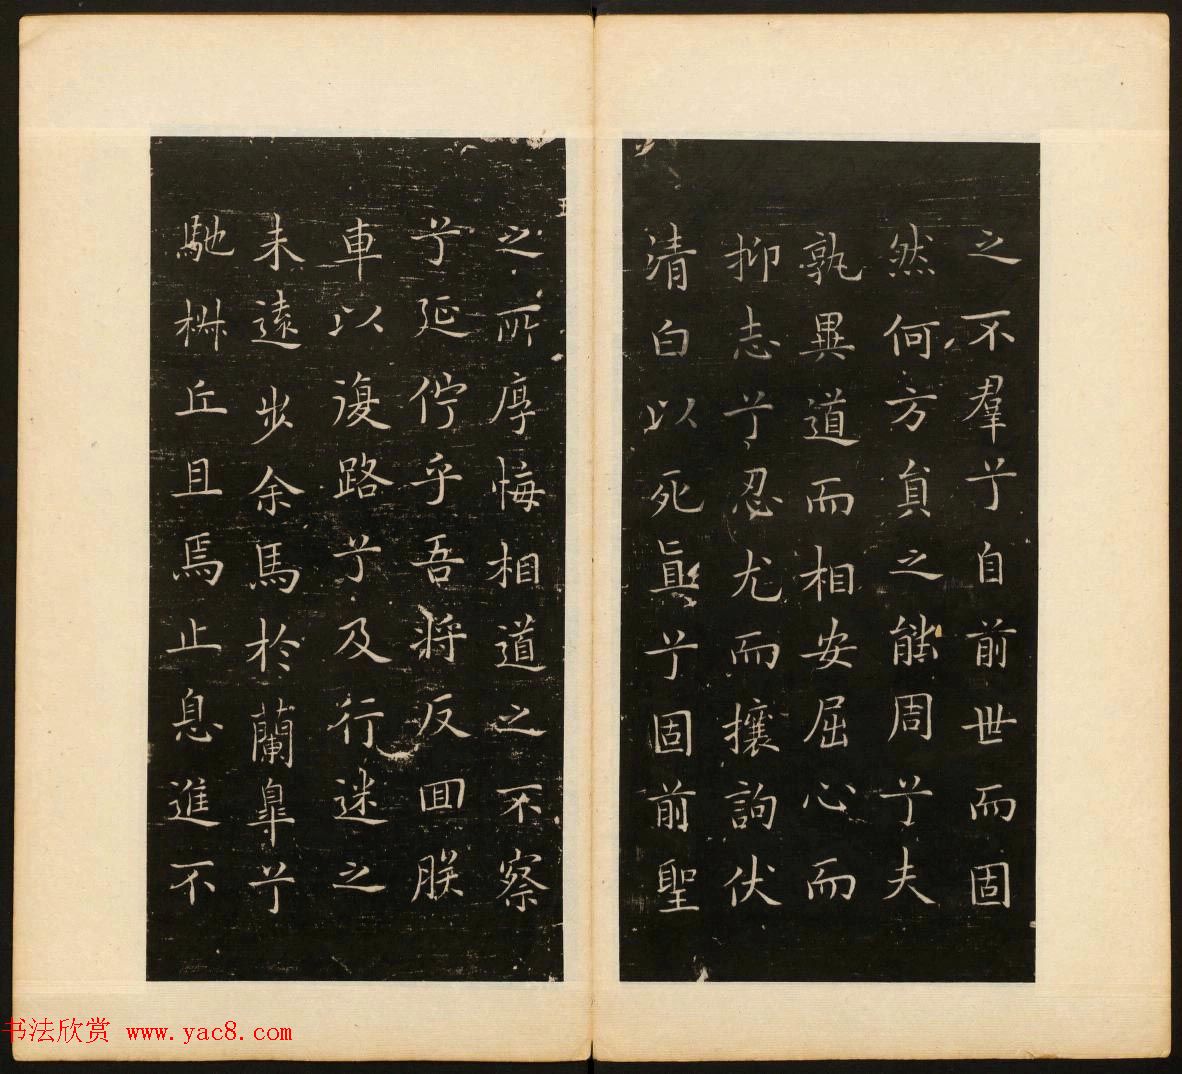 之不羣兮自前世而固
然何方員之能周兮夫
孰異道而相安屈心而
抑志兮忍尤而攘詢伏
清白以死眞兮固前聖
之所厚悔相道之不察
兮延佇乎吾將反回朕
車以復路兮及行迷之
未遠步余馬於蘭皋兮
馳椒丘且焉止息進不
书法欣赏 www.yac8.com